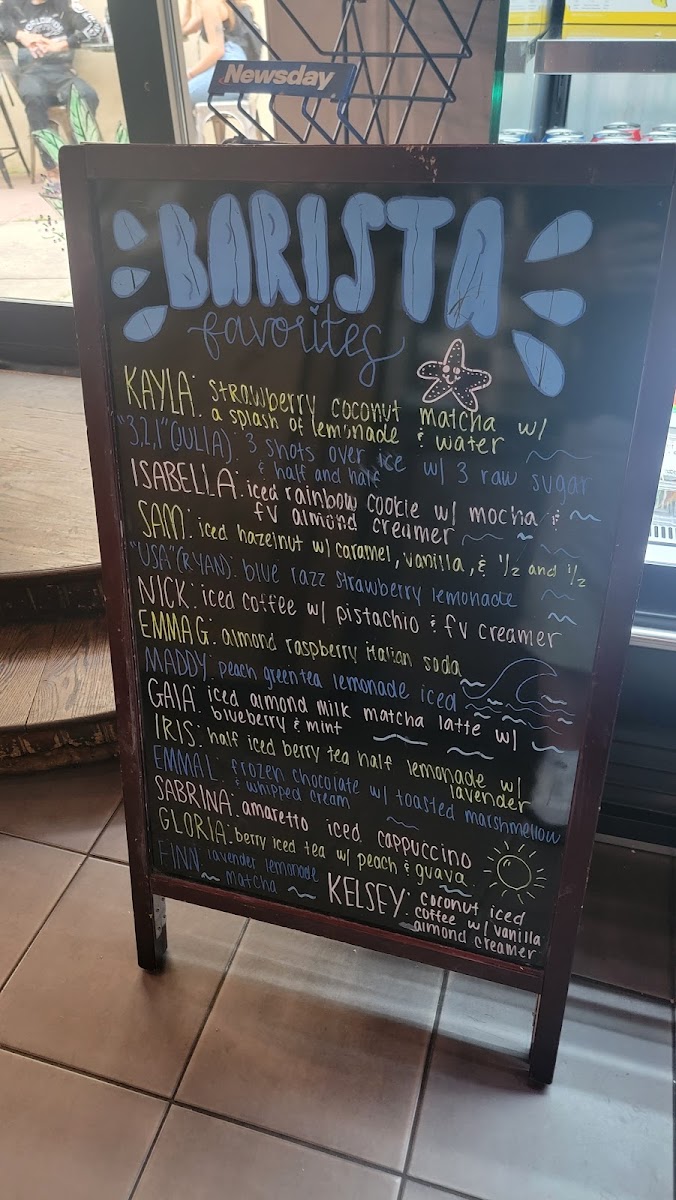 Newsday
BARISTA
favorites
KAYLA: strawberry coconut matcha w/
a splash of lemonade & water
"3,2,1" (JULIA): 3 shots over ice w/ 3 raw sugar
& half and half
ISABELLA: iced rainbow cookie w/ mocha &
fv almond creamer
SAM: iced hazelnut w/ caramel, vanilla, & 1/2 and 1/2
"USA" (RYAN): blue razz strawberry lemonade
NICK: iced coffee w/ pistachio & fv creamer
EMMA G: almond raspberry italian soda
MADDY: peach green tea lemonade iced
GAIA: iced almond milk matcha latte w/
blueberry & mint
IRIS: half iced berry tea half lemonade w/
lavender
EMMA L: frozen chocolate w/ toasted marshmellow
& whipped cream
SABRINA: amaretto iced cappuccino
GLORIA: berry iced tea w/ peach & guava
FINN: lavender lemonade
matcha
KELSEY: coconut iced
coffee w/ vanilla
almond creamer